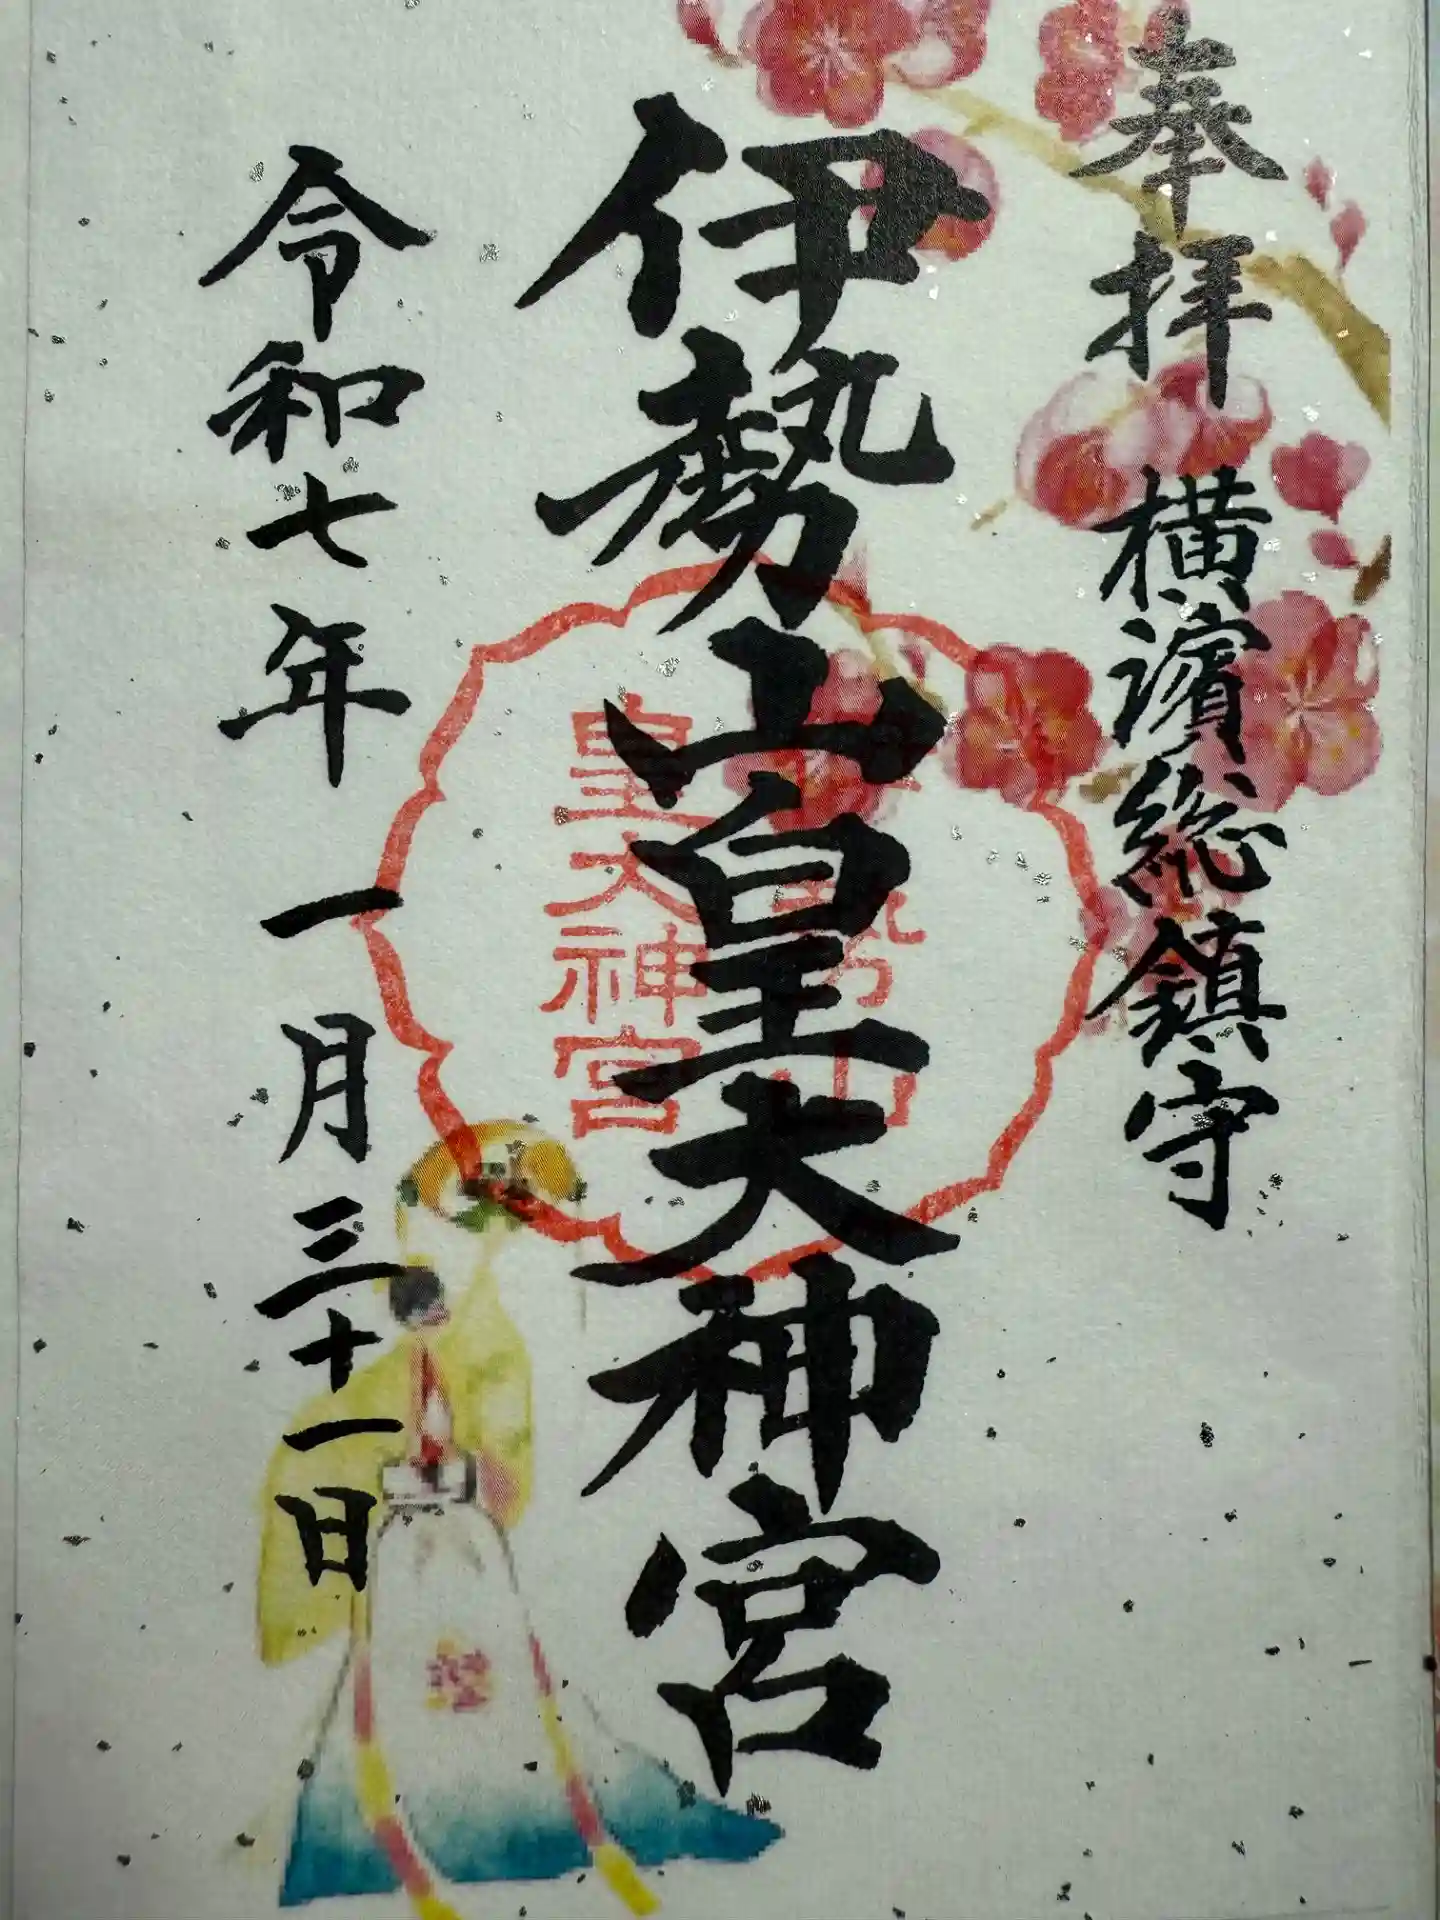 奉拝 横濱総鎮守
伊勢山皇大神宮
勢山
皇大神宮
令和七年 一月三十一日